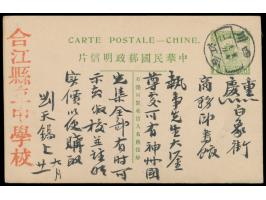 CARTE POSTALE—CHINE.
中華民國郵政明信片
重慶
白象街
商務印書館
執事先生大鑒
尊處可有神州國
光集全部有時可
示去做校並請將
實價以便購取
六月廿一
劉天錫上
合江縣立中學校